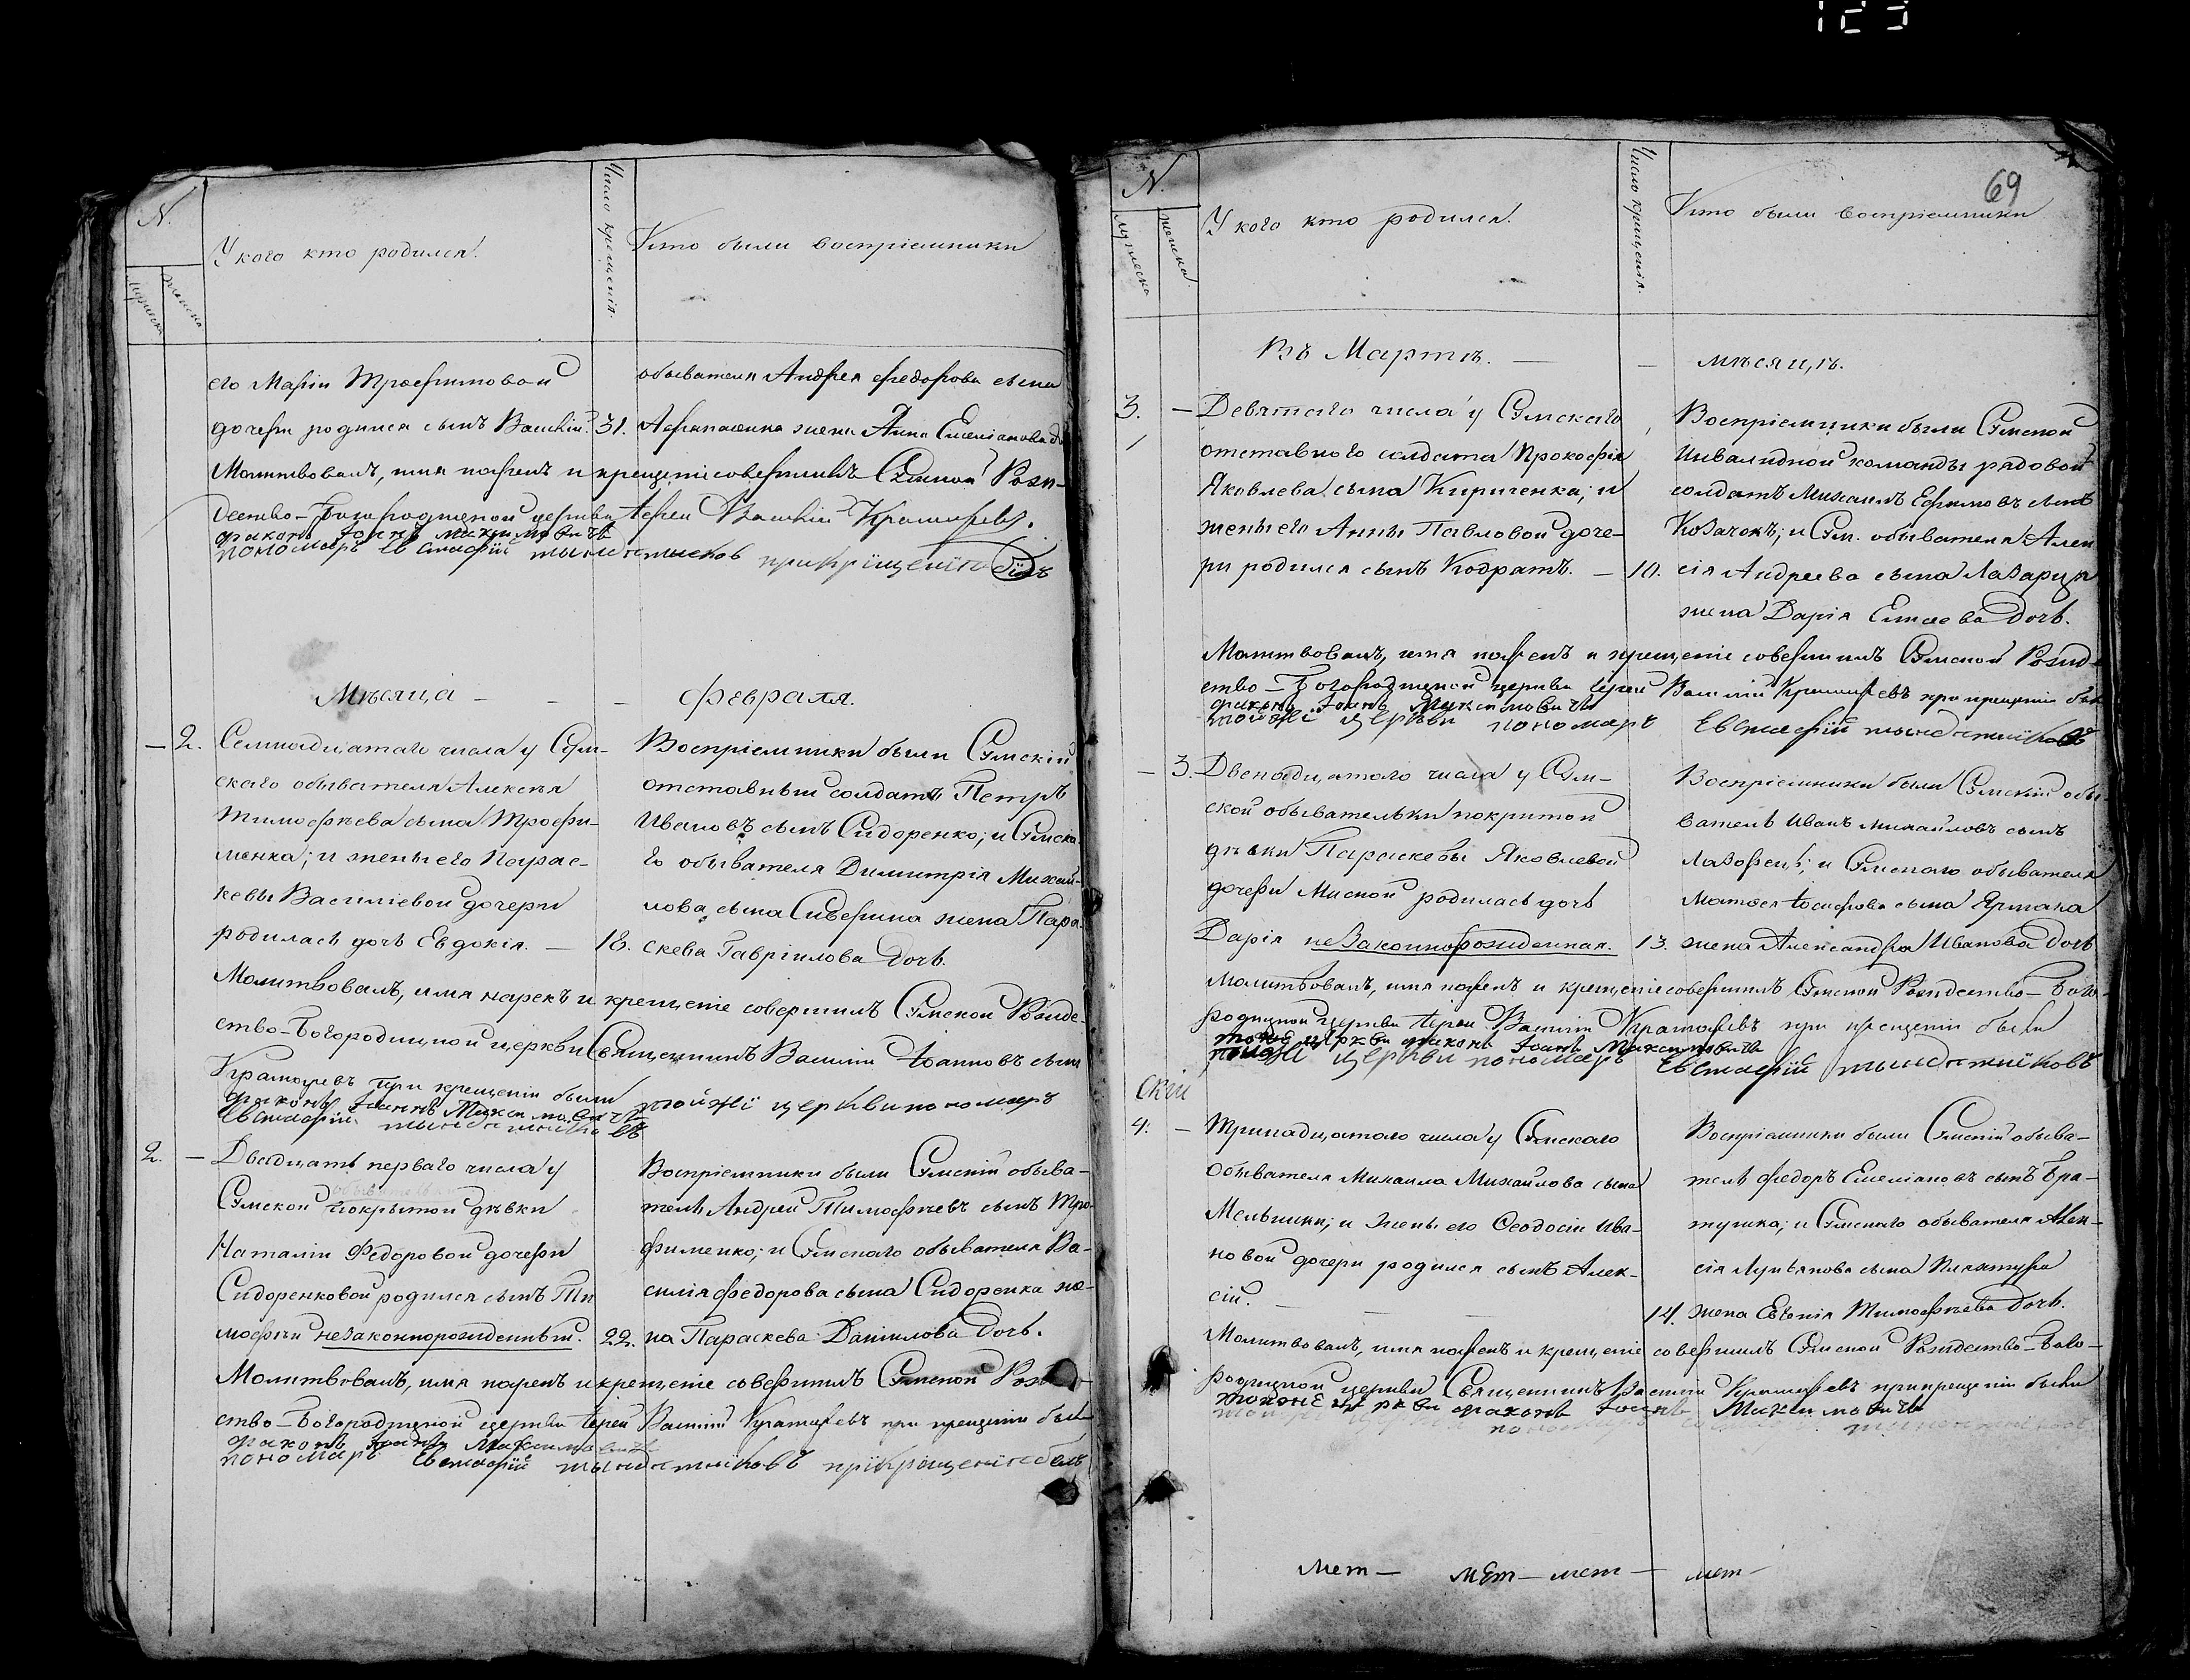 123
N.
мужеска
женска
У кого кто родился.
Число крещенія.
Кто были воспріемники
его Маріи Трофимовой
дочери родился сынъ Василій. 31.
обывателя Андрея Федорова сына
Афанасенка жена Анна Емеліанова
Молитвовалъ, имя нарекъ и крещеніе совершилъ Сумской Рож-
дество-Богородичной церкви Іерей Василій
діаконъ Іоаннъ Максимовичъ
пономарь Евстафій при крещеніи
Мѣсяца - - - Февраля.
- 2. Семнадцатаго числа у Сум-
скаго обывателя Алексѣя
Тимофѣева сына Трофи-
менка; и жены его Парас-
кевы Василіевой дочери
родилась дочь Евдокія. — 18.
Воспріемники были Сумскій
отставный солдатъ Петръ
Ивановъ сынъ Сидоренко; и Сумска-
го обывателя Димитрія Михай-
лова сына Сиверина жена Пара-
скева Гавріилова дочь.
Молитвовалъ, имя нарекъ и крещеніе совершилъ Сумской Рожде-
ство-Богородичной церкви Священникъ Василій Іоанновъ сынъ
при крещеніи были
діаконъ Іоаннъ Максимовичъ тойжі церкви пономарь
Евстафій
2. - Двадцать перваго числа у
Сумской покрытой дѣвки
Наталіи Федоровой дочери
Сидоренковой родился сынъ Ти
мофѣй незаконнорожденный. 22.
Воспріемники были Сумскій обыва-
тель Андрей Тимофѣевъ сынъ Тро-
фименко; и Сумскаго обывателя Ва-
силія Федорова сына Сидоренка же-
на Параскева Даніилова дочь.
Молитвовалъ, имя нарекъ и крещеніе совершилъ Сумской
ство-Богородичной церкви Іерей Василій при крещеніи
діаконъ Іоаннъ
пономарь Евстафій
69
N.
мужеска
женска
У кого кто родился.
Число крещенія.
Кто были воспріемники
Въ Мартѣ. — - мѣсяцѣ.
3. - Девятаго числа у Сумскаго
отставного солдата Прокофія
Яковлева сына Кириченка; и
жены его Анны Павловой доче-
ри родился сынъ Кодратъ. — 10.
Воспріемники были Сумской
Инвалидной команды рядовой
солдатъ Михаилъ Ефимовъ сынъ
Козачокъ; и Сум. обывателя Алек
сія Андреева сына
жена Дарія дочь.
Молитвовалъ, имя нарекъ и крещеніе совершилъ Сумской
ство-Богородичной церкви Іерей Василій при крещеніи
діаконъ Іоаннъ Максимовичъ
тойжі церкви пономарь Евстафій
- 3. Двенадцатаго числа у Сум-
ской обывательки покритой
дѣвки Параскевы Яковлевой
дочери родилась дочь
Дарія незаконнорожденная. 13.
Воспріемники были Сумскій обы-
ватель Иванъ Михайловъ сынъ
и Сумскаго обывателя
Матѳея Іосифова сына Ярмака
жена Александра Иванова дочь
Молитвовалъ, имя нарекъ и крещеніе совершилъ Сумской Рождество-Бого-
родичной церкви Іерей Василій при крещеніи были
діаконъ Іоаннъ Максимовичъ
церкви пономарь Евстафій
скій
4. - Тринадцатаго числа у Сумскаго
обывателя Михаила Михайлова сына
Мельники; и жены его Ѳеодосіи Ива-
новой дочери родился сынъ Алек-
сій. — — — 14.
Воспріемники были Сумскій обыва-
тель Федоръ Емеліановъ сынъ
и Сумскаго обывателя Алек-
сія Лукьянова сына
жена Евгенія Тимофѣева дочь.
Молитвовалъ, имя нарекъ и крещеніе совершилъ Сумской Рождество-Бого-
родичной церкви Священникъ Василій при крещеніи были
діаконъ Іоаннъ Максимовичъ
мет — мет — мет — мет —